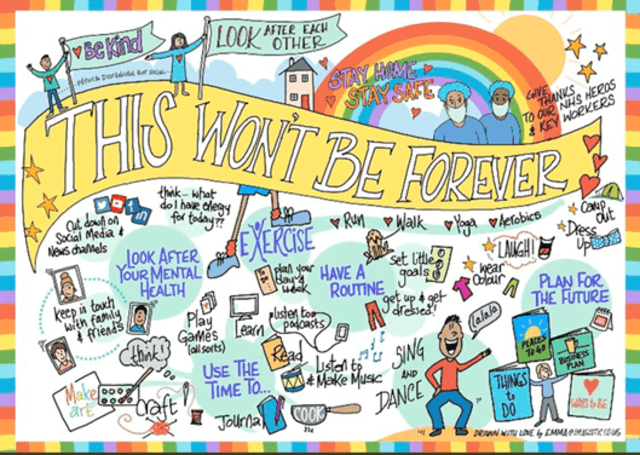 Be Kind
LOOK AFTER EACH
OTHER
STAY HOME
STAY SAFE
GIVE
THANKS
TO OUR NHS HEROS
& KEY WORKERS
THIS WON'T BE FOREVER
Cut down on
Social Media &
News channels
think - what
do I have energy
for today??
LOOK AFTER
YOUR MENTAL
HEALTH
keep in touch
with family
& friends
think!
Make
art
Craft
EXERCISE
Run
Walk
Yoga
Aerobics
Plan your
day &
week
HAVE A
ROUTINE
Set little
goals
get up & get
dressed!
LAUGH!
wear
Colour
Camp
out
Dress
Up
PLAN FOR
THE FUTURE
Play
Games
(all sorts)
Learn
listen to
podcasts
Read
USE THE
TIME TO...
Listen to
& Make Music
Journal
COOK
SING
AND
DANCE
Lalala
PLACES
TO GO
BUSINESS
PLAN
THINGS
to
DO
WAYS to BE
DRAWN WITH LOVE by EMMA@IMAGISTIC.CO.UK